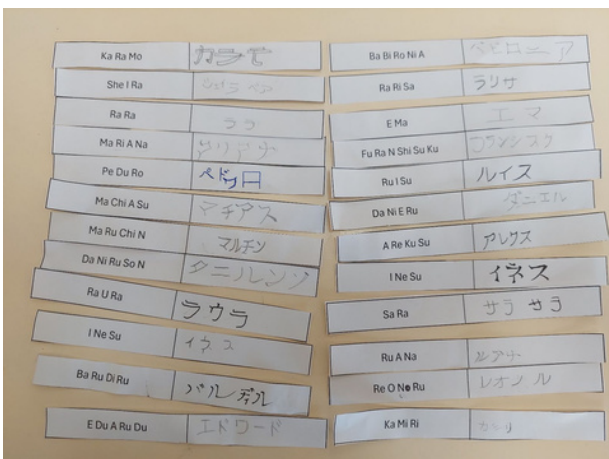 Ka Ra Mo カラモ
She I Ra
Ra Ra ララ
Ma Ri A Na マリアナ
Pe Du Ro ペドゥロ
Ma Chi A Su マチアス
Ma Ru Chi N マルチン
Da Ni Ru So N
Ra U Ra ラウラ
I Ne Su イネス
Ba Ru Di Ru バルディル
E Du A Ru Du エドワード
Ba Bi Ro Ni A
Ra Ri Sa ラリサ
E Ma エマ
Fu Ra N Shi Su Ku フランシスク
Ru I Su ルイス
Da Ni E Ru ダニエル
A Re Ku Su アレクス
I Ne Su イネス
Sa Ra サラ サラ
Ru A Na ルアナ
Re O No Ru レオノル
Ka Mi Ri